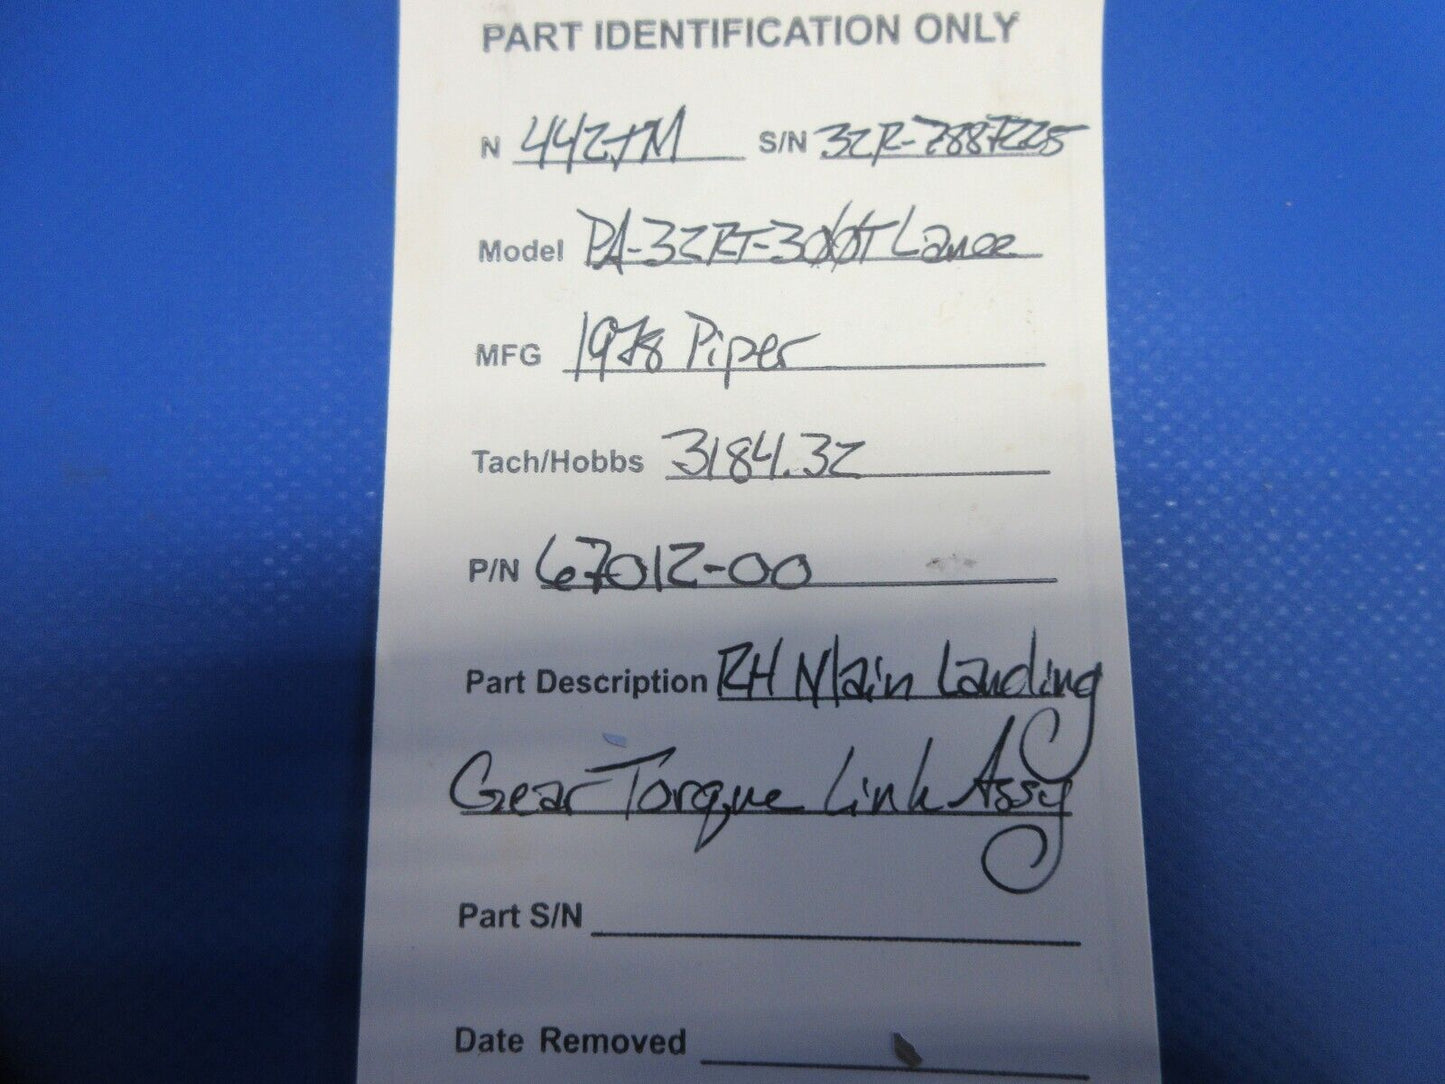 PART IDENTIFICATION ONLY
N 442JM S/N 32R-7887225
Model PA-32RT-300T Lance
MFG 1978 Piper
Tach/Hobbs 3184.32
P/N 67012-00
Part Description RH Main Landing
Gear Torque Link Assy
Part S/N
Date Removed